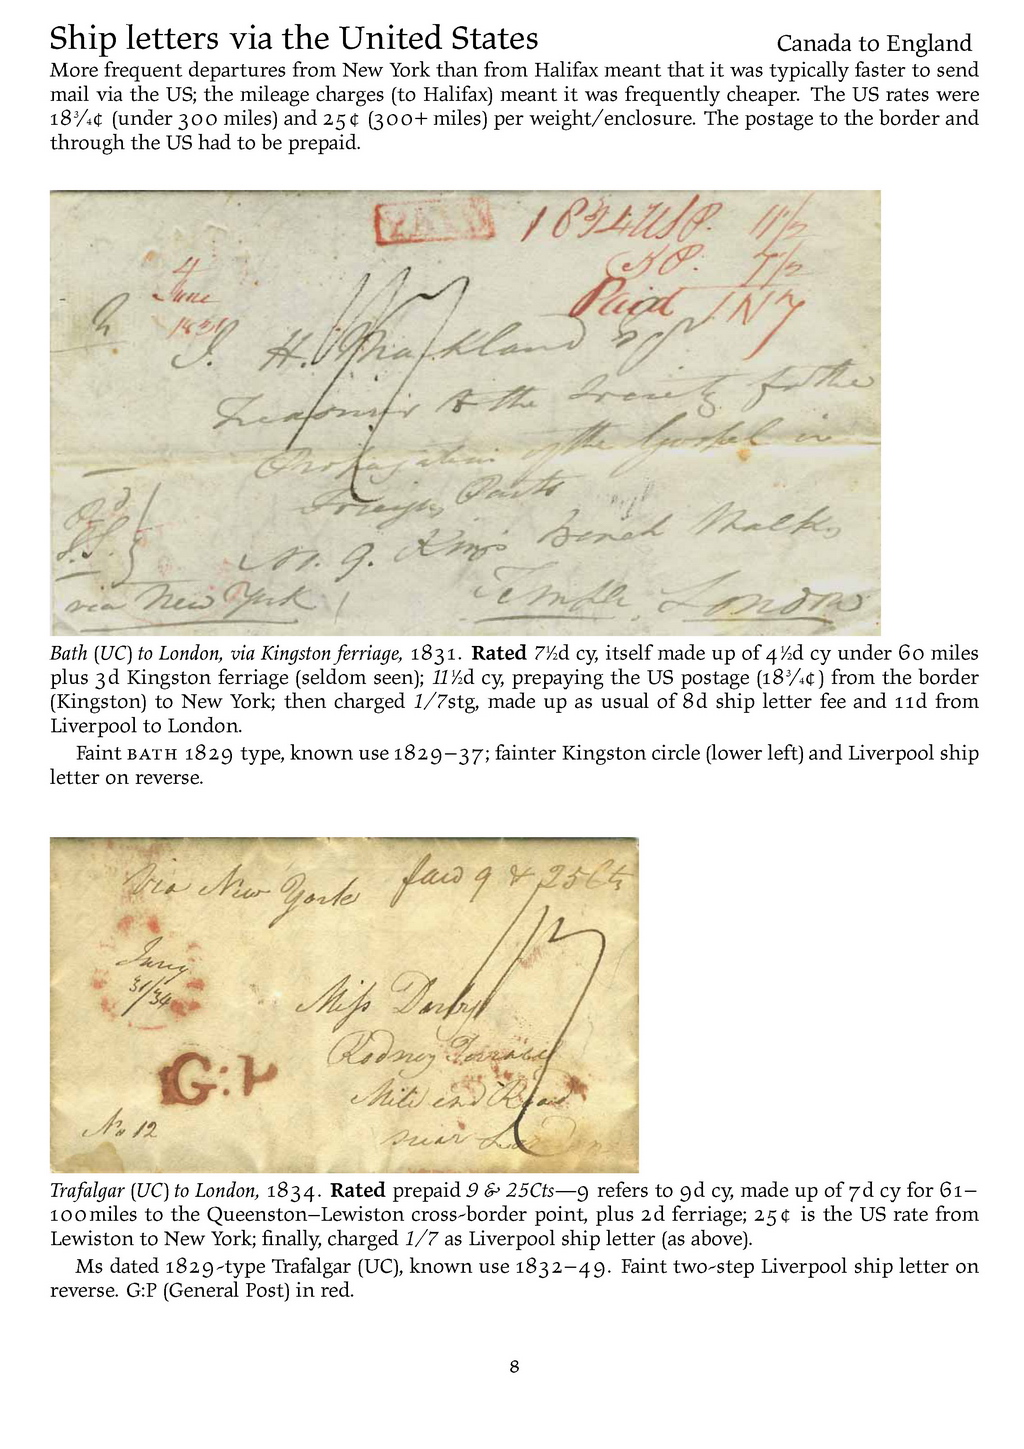 Ship letters via the United States
Canada to England
More frequent departures from New York than from Halifax meant that it was typically faster to send
mail via the US; the mileage charges (to Halifax) meant it was frequently cheaper. The US rates were
18¾¢ (under 300 miles) and 25¢ (300+ miles) per weight/enclosure. The postage to the border and
through the US had to be prepaid.
PAID
18 3/4 US P. 11½
P. 7½
4
June
1831
Paid 1/7
1/7
J. H. Markland
Treasurer to the Society for the
Propagation of the Gospel in
Foreign Parts
No. 9. Kings Bench Walks
via New York
Temple London
Bath (UC) to London, via Kingston ferriage, 1831. Rated 7½d cy, itself made up of 4½d cy under 60 miles
plus 3d Kingston ferriage (seldom seen); 11½d cy, prepaying the US postage (18¾¢) from the border
(Kingston) to New York; then charged 1/7stg, made up as usual of 8d ship letter fee and 11d from
Liverpool to London.
Faint BATH 1829 type, known use 1829–37; fainter Kingston circle (lower left) and Liverpool ship
letter on reverse.
Via New York Paid 9 & 25Cts
1/7
Jany
31/34
Miss Darby
Rodney Terrace
G:P
Mile end Road
No 12
near London
Trafalgar (UC) to London, 1834. Rated prepaid 9 & 25Cts—9 refers to 9d cy, made up of 7d cy for 61–
100miles to the Queenston–Lewiston cross-border point, plus 2d ferriage; 25¢ is the US rate from
Lewiston to New York; finally, charged 1/7 as Liverpool ship letter (as above).
Ms dated 1829-type Trafalgar (UC), known use 1832–49. Faint two-step Liverpool ship letter on
reverse. G:P (General Post) in red.
8